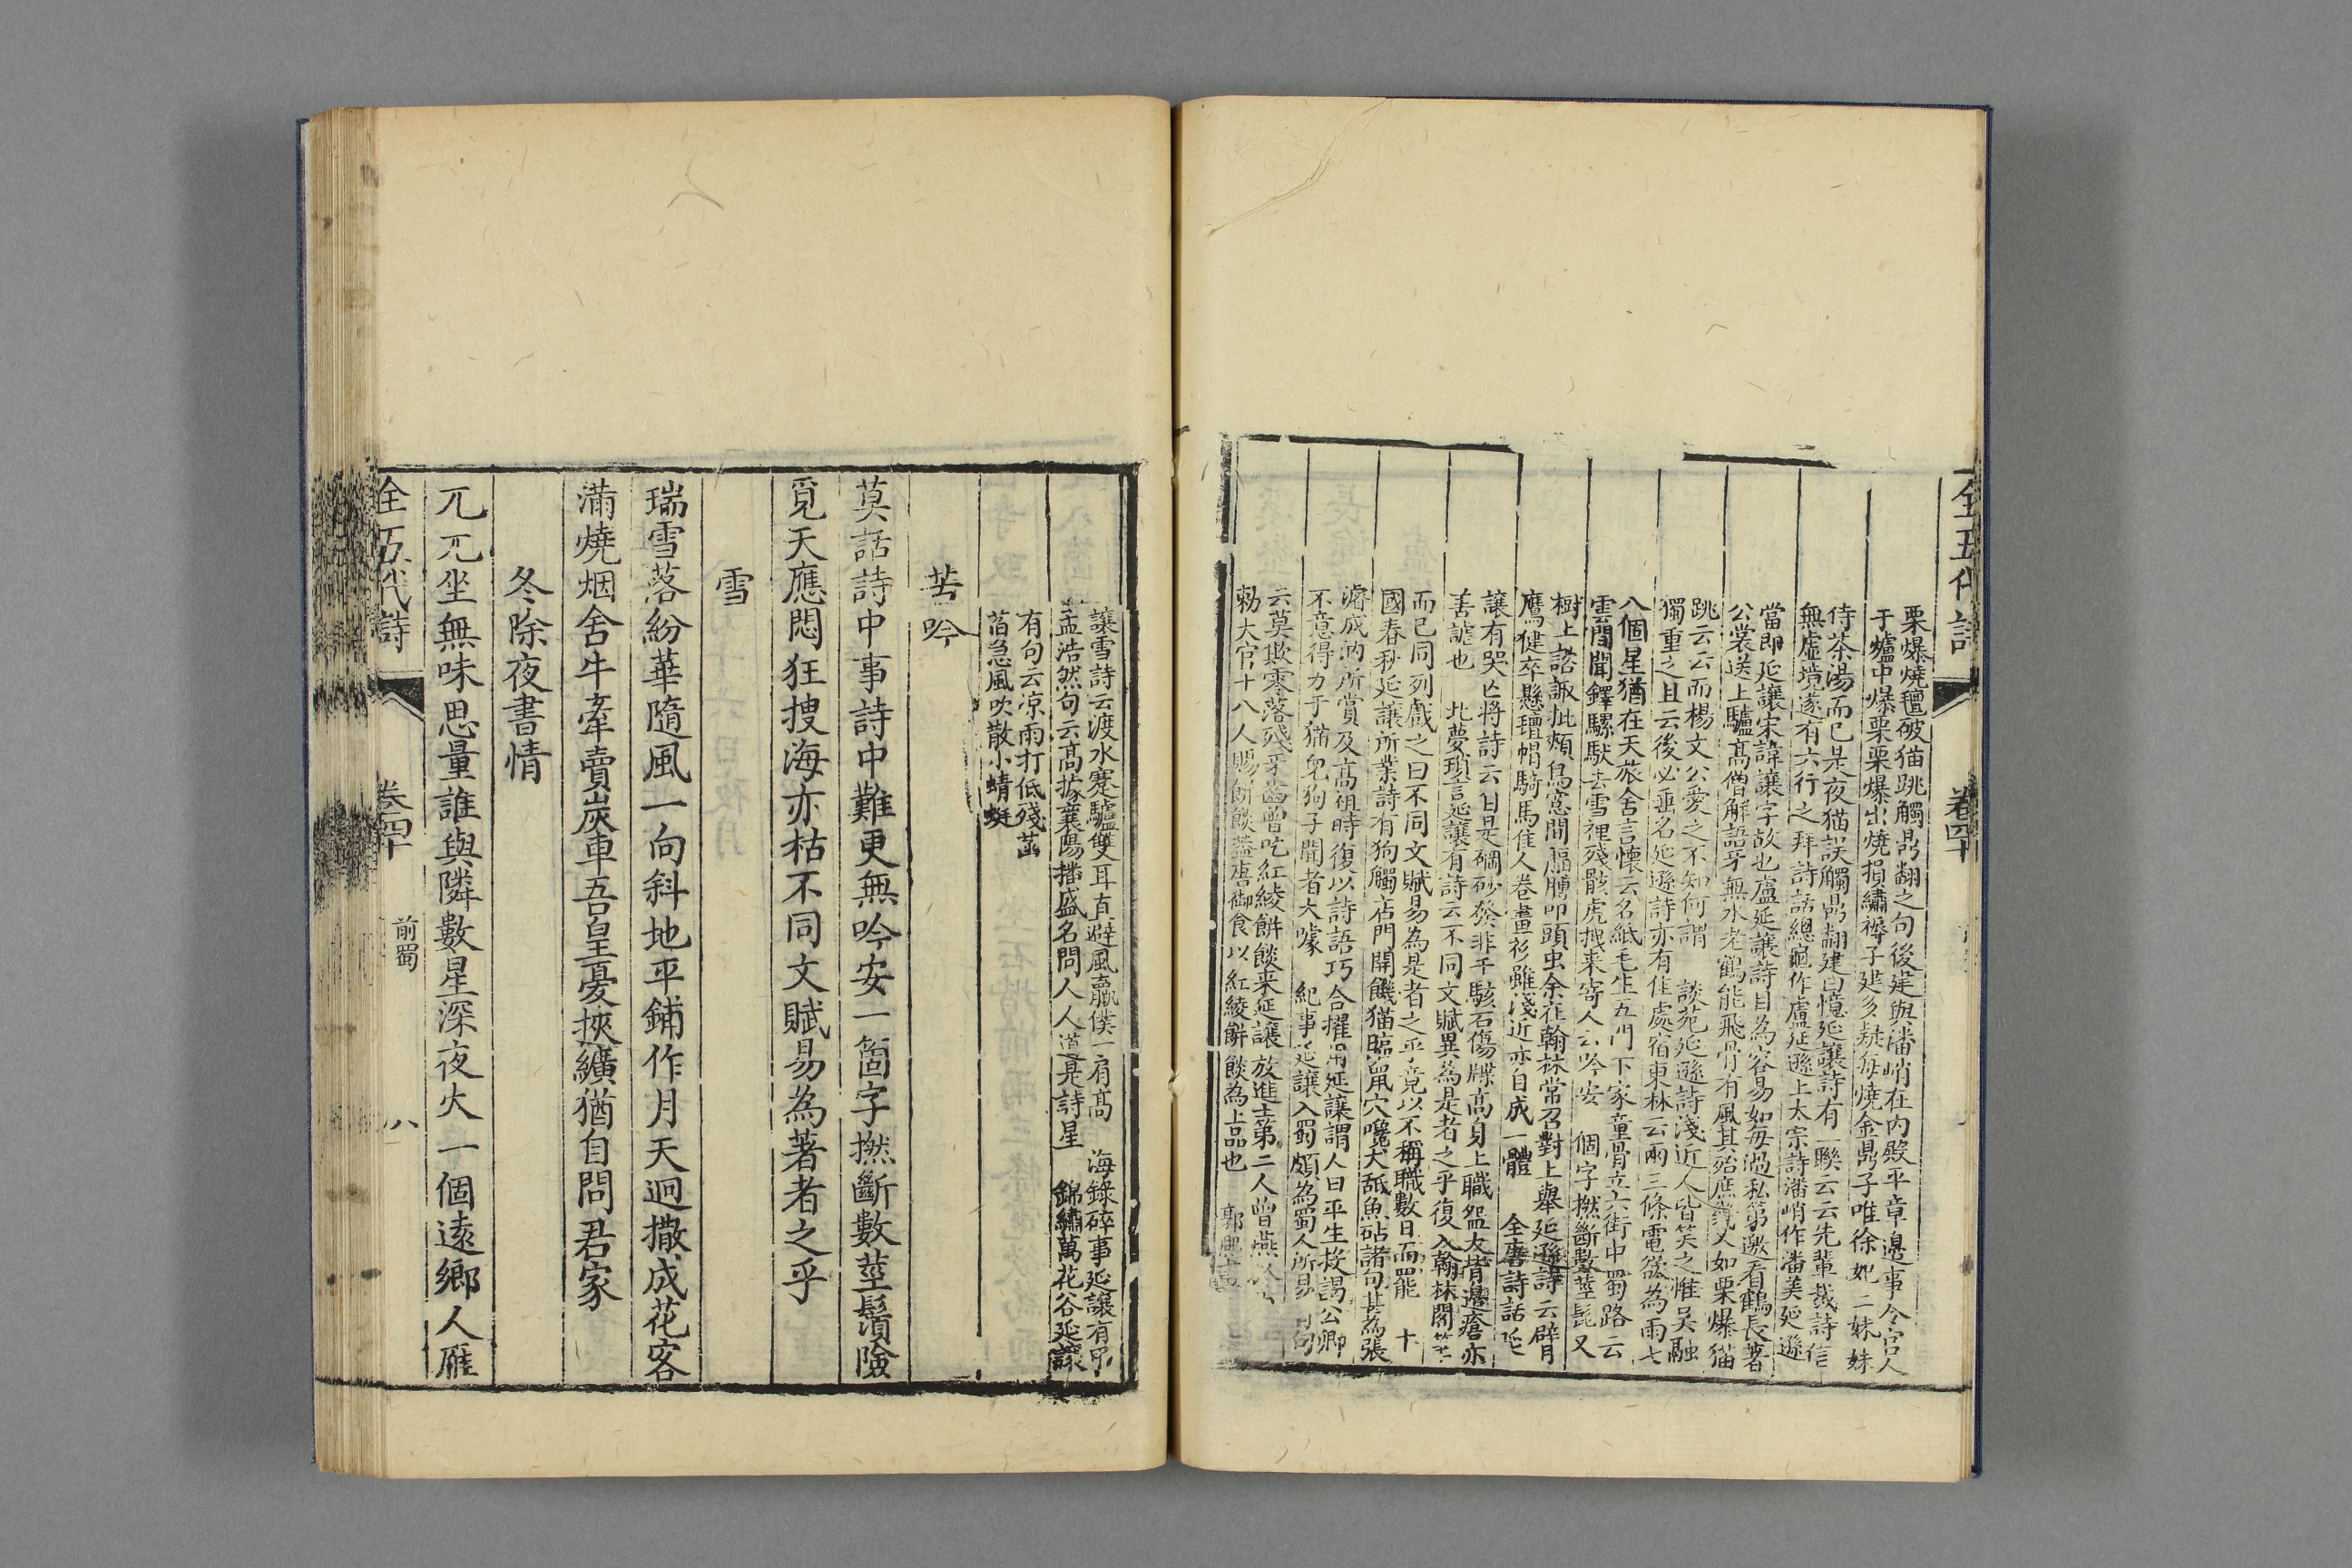 全五代詩 卷四十
栗爆燒氊破猫跳觸鼎翻之句後建與潘峭在内殿平章邊事令宫人
于爐中爆栗栗爆出燒損繡褥子建多疑每燒金鼎子唯徐妃二妹妹
侍茶湯而已是夜猫誤觸鼎翻建曰憶延讓詩有一聯云云先輩裁詩信
無虛境遂有六行之拜詩話總龜作盧延遜上太宗詩潘峭作潘美延遜
當即延讓宋諱讓字故也盧延讓詩目為容易如每過私第邀看鶴長著
公裳送上驢高僧解語牙無水老鶴能飛骨有風其殆庶幾又如栗爆猫
跳云云而楊文公愛之不知何謂 談苑延遜詩淺近人皆笑之惟吳融
獨重之且云後必垂名延遜詩亦有佳處宿東林云兩三條電欲為雨七
八個星猶在天旅舍言懷云名紙毛生五門下家童骨立六街中蜀路云
雲間聞鐸騾馱去雪裡殘骸虎拽来寄人云吟安 個字撚斷數莖髭又
樹上諮諏批頰鳥窓間壁駁叩頭虫余在翰林常召對上舉延遜詩云臂
鷹健卒懸氊帽騎馬佳人卷畫衫雖淺近亦自成一體 全唐詩話延
讓有哭亡將詩云自是硇砂發非干駭石傷牒高身上職盌大背邊瘡亦
善謔也 北夢瑣言延讓有詩云不同文賦異為是者之乎復入翰林閣筆
而已同列戲之曰不同文賦易為是者之乎竟以不稱職數日而罷 十
國春秋延讓所業詩有狗觸店門開饑猫臨鼠穴嚵犬舐魚砧諸句甚為張
濬成汭所賞及高祖時復以詩語巧合擢用延讓謂人曰平生投謁公卿
不意得力于猫兒狗子聞者大噱 紀事延讓入蜀頗為蜀人所易 句
云莫欺零落殘牙齒曾吃紅綾餅餤来延讓放進士第二人曾燕
勑大官十八人賜餅餤蓋唐御食以紅綾餅餤為上品也 郭
讓雪詩云渡水蹇驢雙耳直避風羸僕一肩高 海錄碎事延讓有弔
孟浩然句云高據襄陽播盛名問人人道是詩星 錦繡萬花谷延讓
有句云凉雨打低殘菡
萏急風吹散小蜻蜓
苦吟
莫話詩中事詩中難更無吟安一箇字撚斷數莖鬚險
覓天應悶狂搜海亦枯不同文賦易為著者之乎
雪
瑞雪落紛華隨風一向斜地平鋪作月天迥撒成花客
滿燒烟舍牛牽賣炭車吾皇憂挾纊猶自問君家
冬除夜書情
兀兀坐無味思量誰與隣數星深夜火一個遠鄉人雁
全五代詩 卷四十 前蜀 八